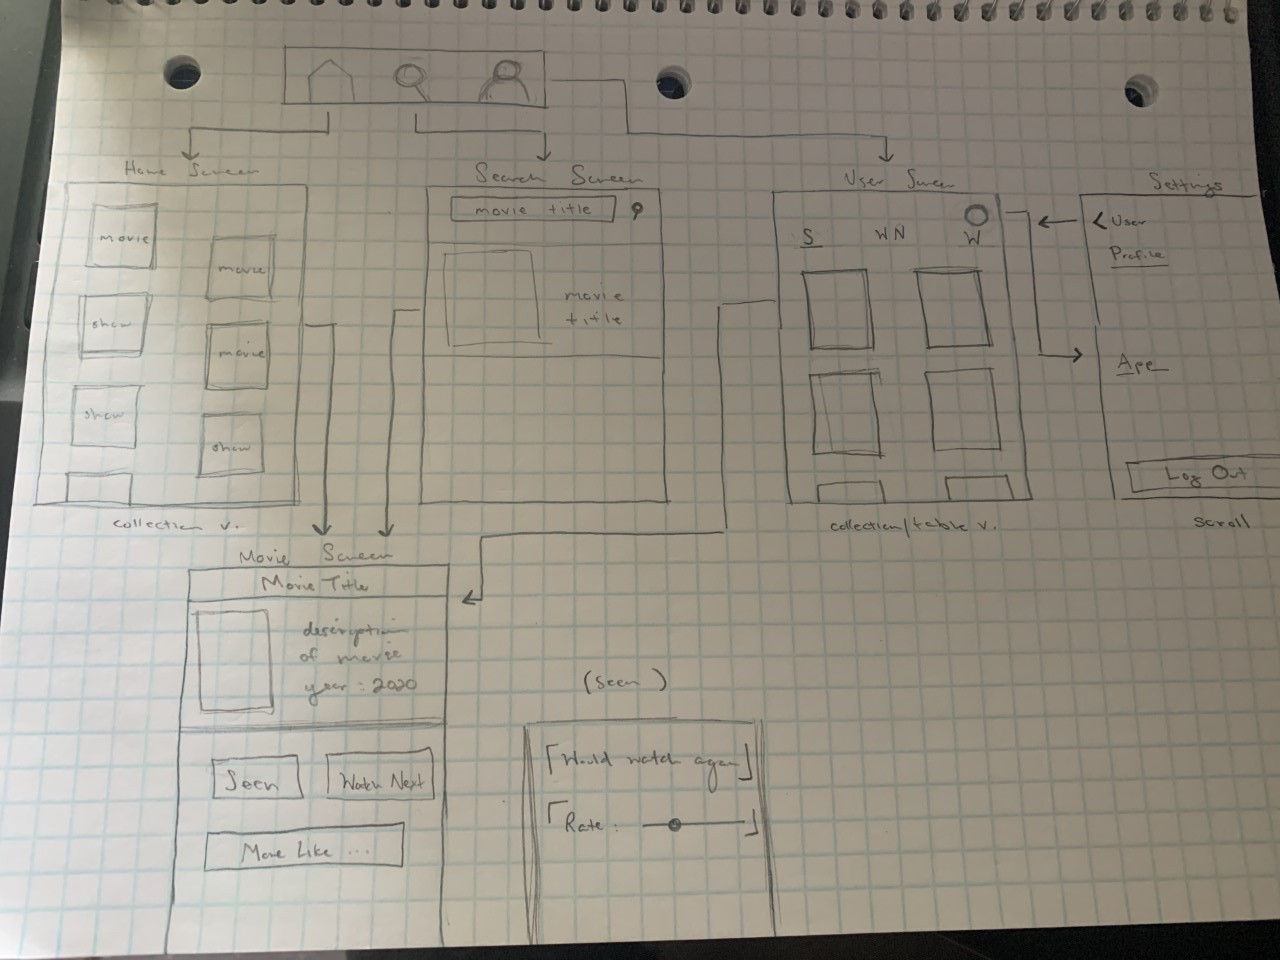 Home Screen
movie
movie
show
movie
show
show
collection v.
Search Screen
movie title
movie
title
User Screen
S WN W
collection/table v.
Settings
< User
Profile
App
Log Out
scroll
Movie Screen
Movie Title
description
of movie
year : 2020
Seen
Watch Next
More Like ...
(Seen)
Would watch again
Rate :